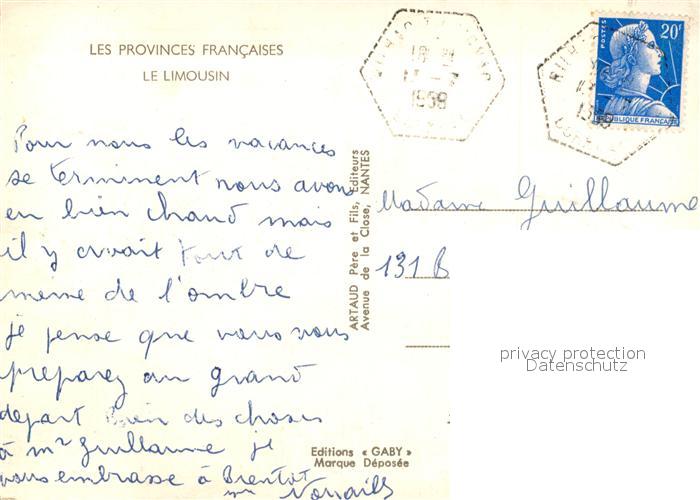 LES PROVINCES FRANÇAISES
LE LIMOUSIN
1958
POSTES
20F
RÉPUBLIQUE FRANÇAISE
Pour nous les vacances
se terminent nous avons
eu bien chaud mais
il y avait tout de
meme de l'ombre
je pense que vous vous
preparez au grand
depart bien des choses
à mr Guillaume je
vous embrasse à Bientôt
ARTAUD Père et Fils, Editeurs
Avenue de la Close, NANTES
Madame Guillaume
131 B
privacy protection
Datenschutz
Editions « GABY »
Marque Déposée